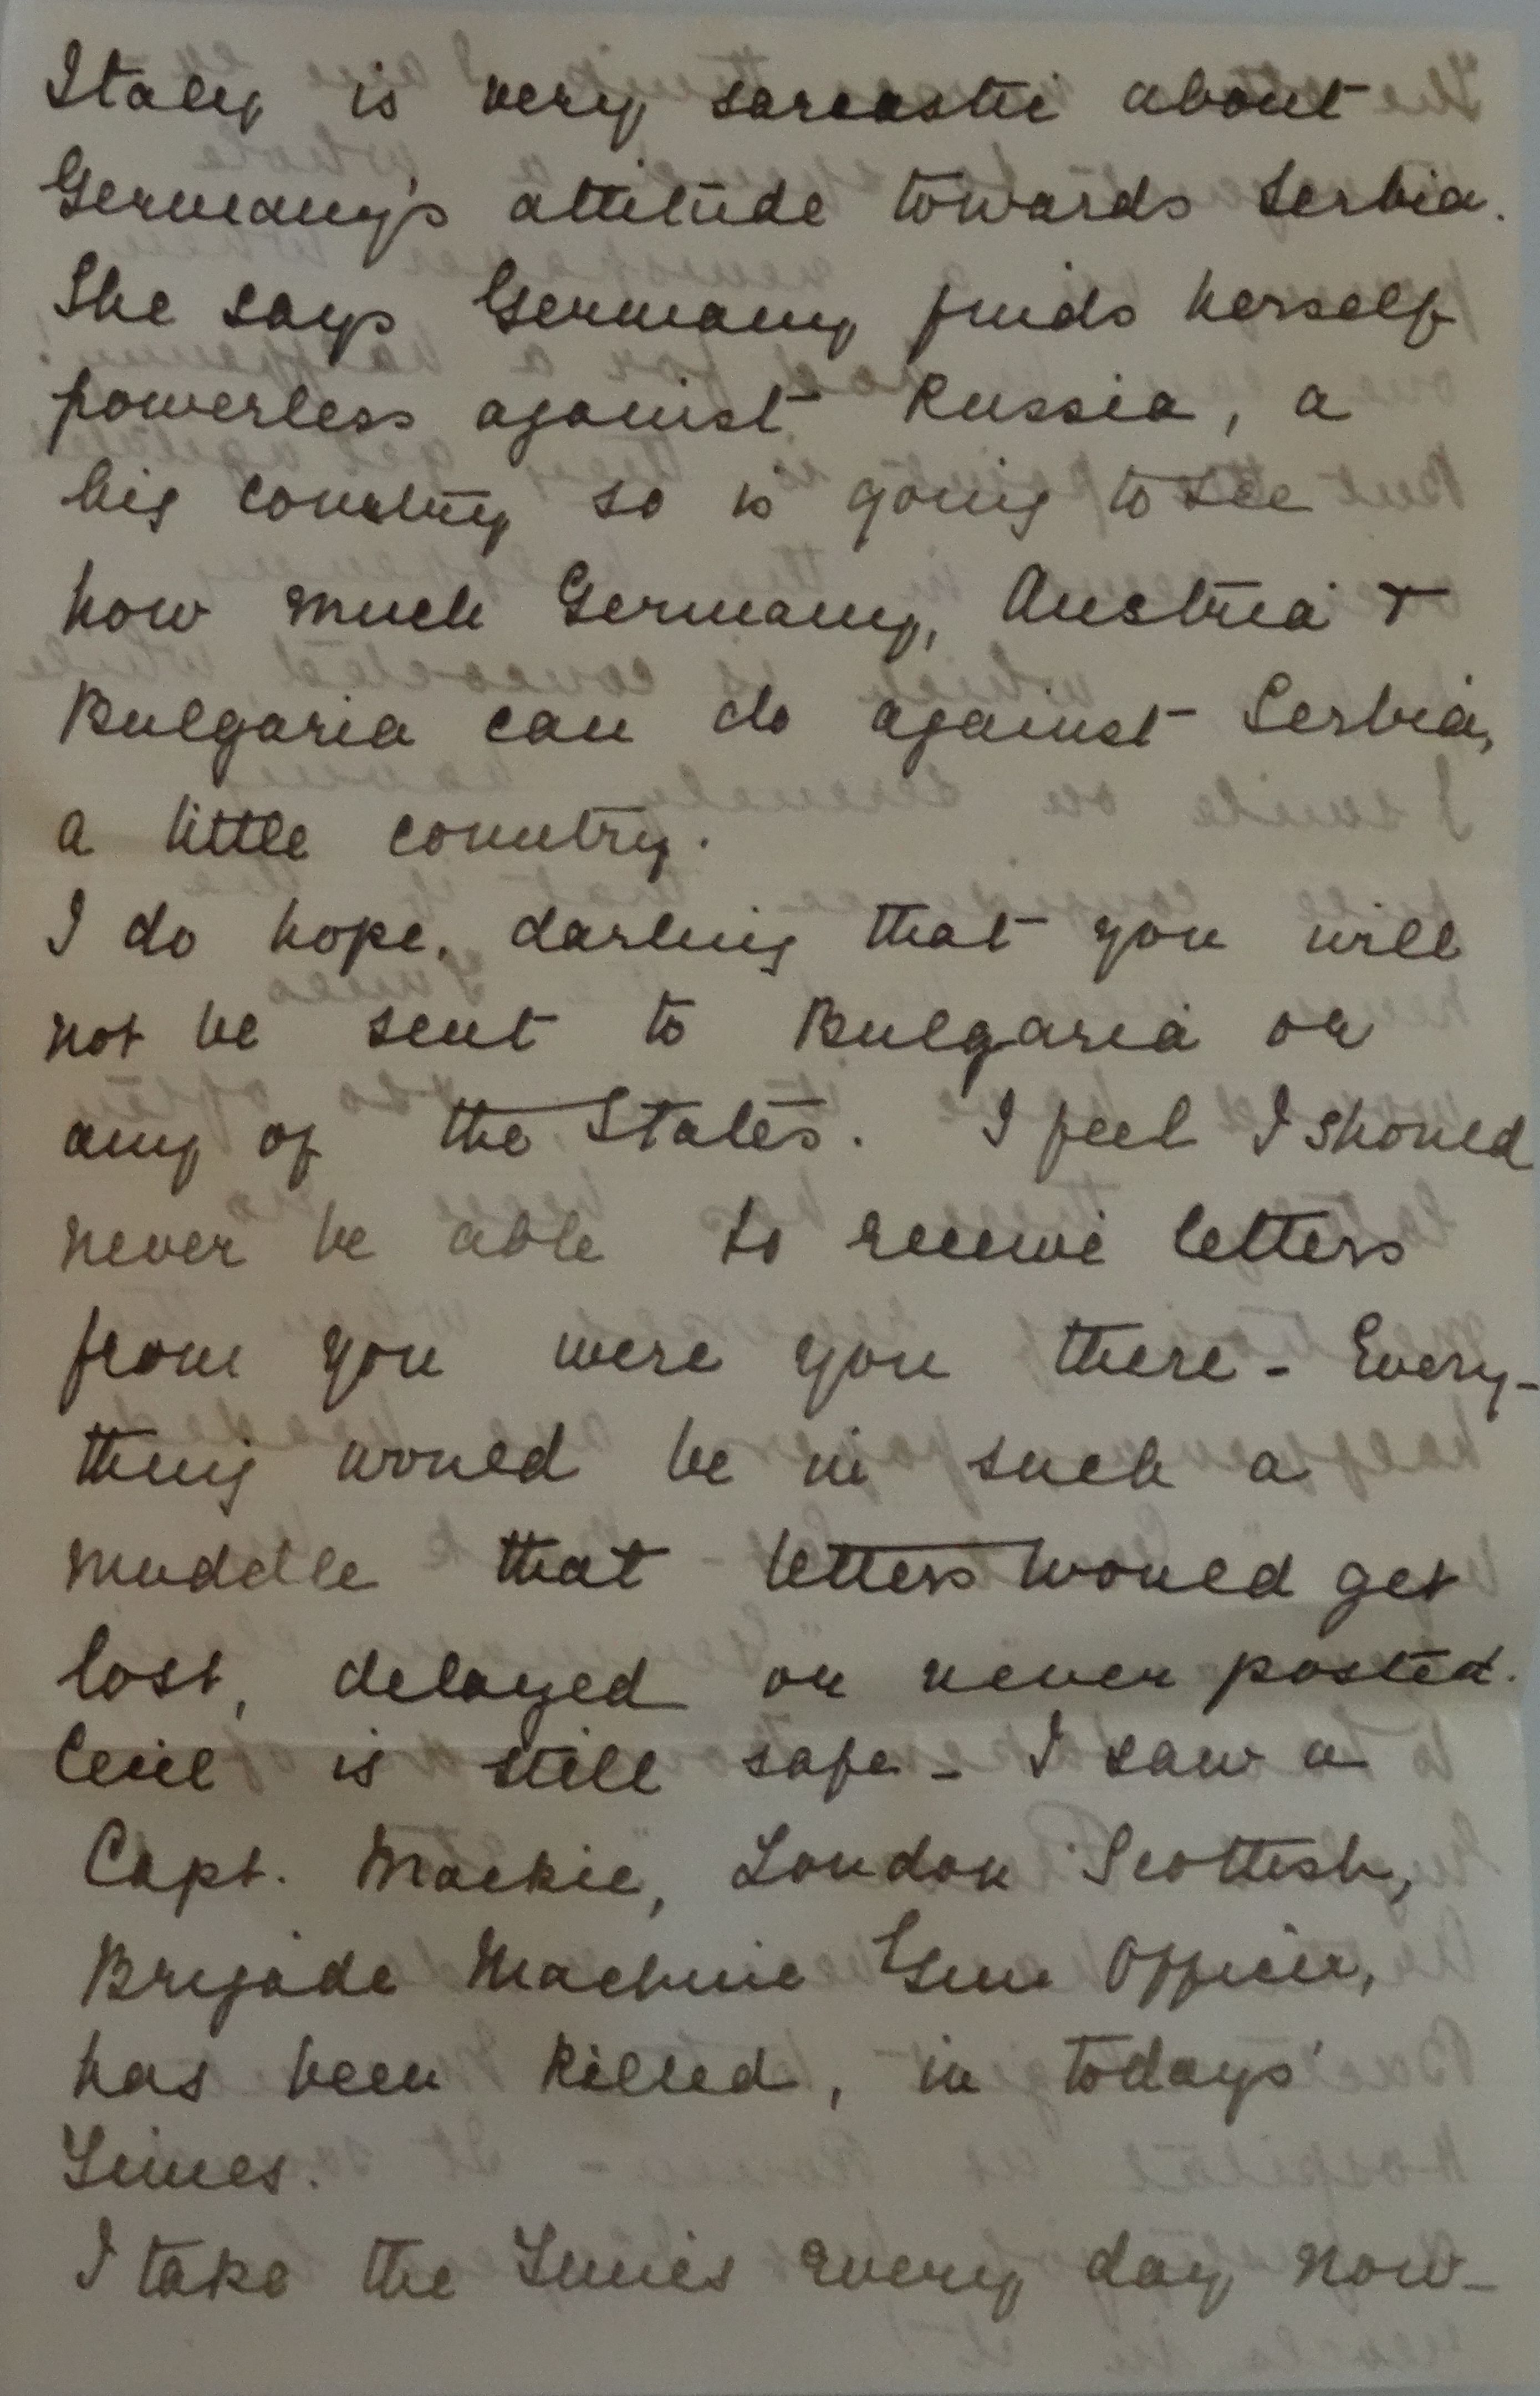 Italy is very sarcastic about
Germany's attitude towards Serbia.
She says Germany finds herself
powerless against Russia, a
big country so is going to see
how much Germany, Austria +
Bulgaria can do against Serbia,
a little country.
I do hope, darling that you will
not be sent to Bulgaria or
any of the States. I feel I should
never be able to receive letters
from you were you there - Every-
thing would be in such a
muddle that letters would get
lost, delayed or never posted.
Cecil is still safe - I saw a
Capt. Mackie, London Scottish,
Brigade Machine Gun Officer,
has been killed, in todays'
Times.
I take the Times every day now -